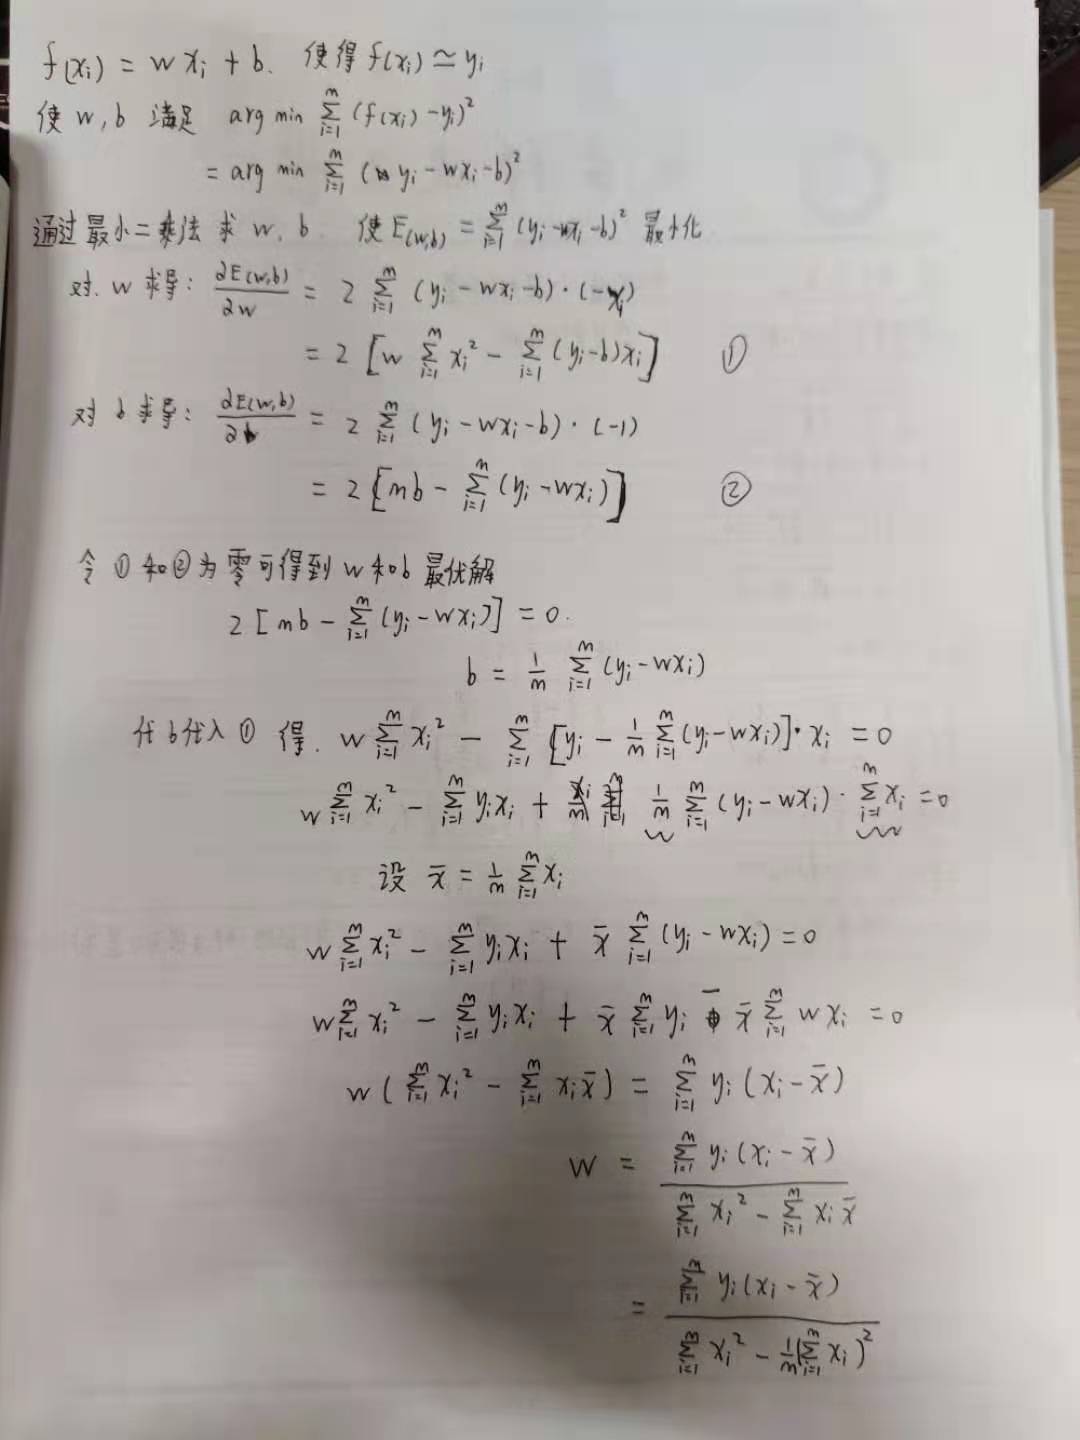 f(xi) = w xi + b. 使得 f(xi) ≃ yi
使 w, b 满足 arg min Σ_{i=1}^{m} (f(xi) - yi)²
= arg min Σ_{i=1}^{m} (yi - wxi - b)²
通过最小二乘法 求 w, b. 使 E(w,b) = Σ_{i=1}^{m} (yi - wxi - b)² 最小化
对 w 求导: ∂E(w,b)/∂w = 2 Σ_{i=1}^{m} (yi - wxi - b)·(-xi)
= 2 [w Σ_{i=1}^{m} xi² - Σ_{i=1}^{m} (yi - b)xi] ①
对 b 求导: ∂E(w,b)/∂b = 2 Σ_{i=1}^{m} (yi - wxi - b)·(-1)
= 2 [mb - Σ_{i=1}^{m} (yi - wxi)] ②
令 ① 和 ② 为零可得到 w 和 b 最优解
2 [mb - Σ_{i=1}^{m} (yi - wxi)] = 0.
b = 1/m Σ_{i=1}^{m} (yi - wxi)
代 b 代入 ① 得. w Σ_{i=1}^{m} xi² - Σ_{i=1}^{m} [yi - 1/m Σ_{i=1}^{m} (yi - wxi)]·xi = 0
w Σ_{i=1}^{m} xi² - Σ_{i=1}^{m} yixi + 1/m Σ_{i=1}^{m} (yi - wxi)·Σ_{i=1}^{m} xi = 0
设 x̄ = 1/m Σ_{i=1}^{m} xi
w Σ_{i=1}^{m} xi² - Σ_{i=1}^{m} yixi + x̄ Σ_{i=1}^{m} (yi - wxi) = 0
w Σ_{i=1}^{m} xi² - Σ_{i=1}^{m} yixi + x̄ Σ_{i=1}^{m} yi - x̄ Σ_{i=1}^{m} wxi = 0
w (Σ_{i=1}^{m} xi² - Σ_{i=1}^{m} xix̄) = Σ_{i=1}^{m} yi (xi - x̄)
w = Σ_{i=1}^{m} yi (xi - x̄) / (Σ_{i=1}^{m} xi² - Σ_{i=1}^{m} xix̄)
= Σ_{i=1}^{m} yi (xi - x̄) / (Σ_{i=1}^{m} xi² - 1/m (Σ_{i=1}^{m} xi)²)